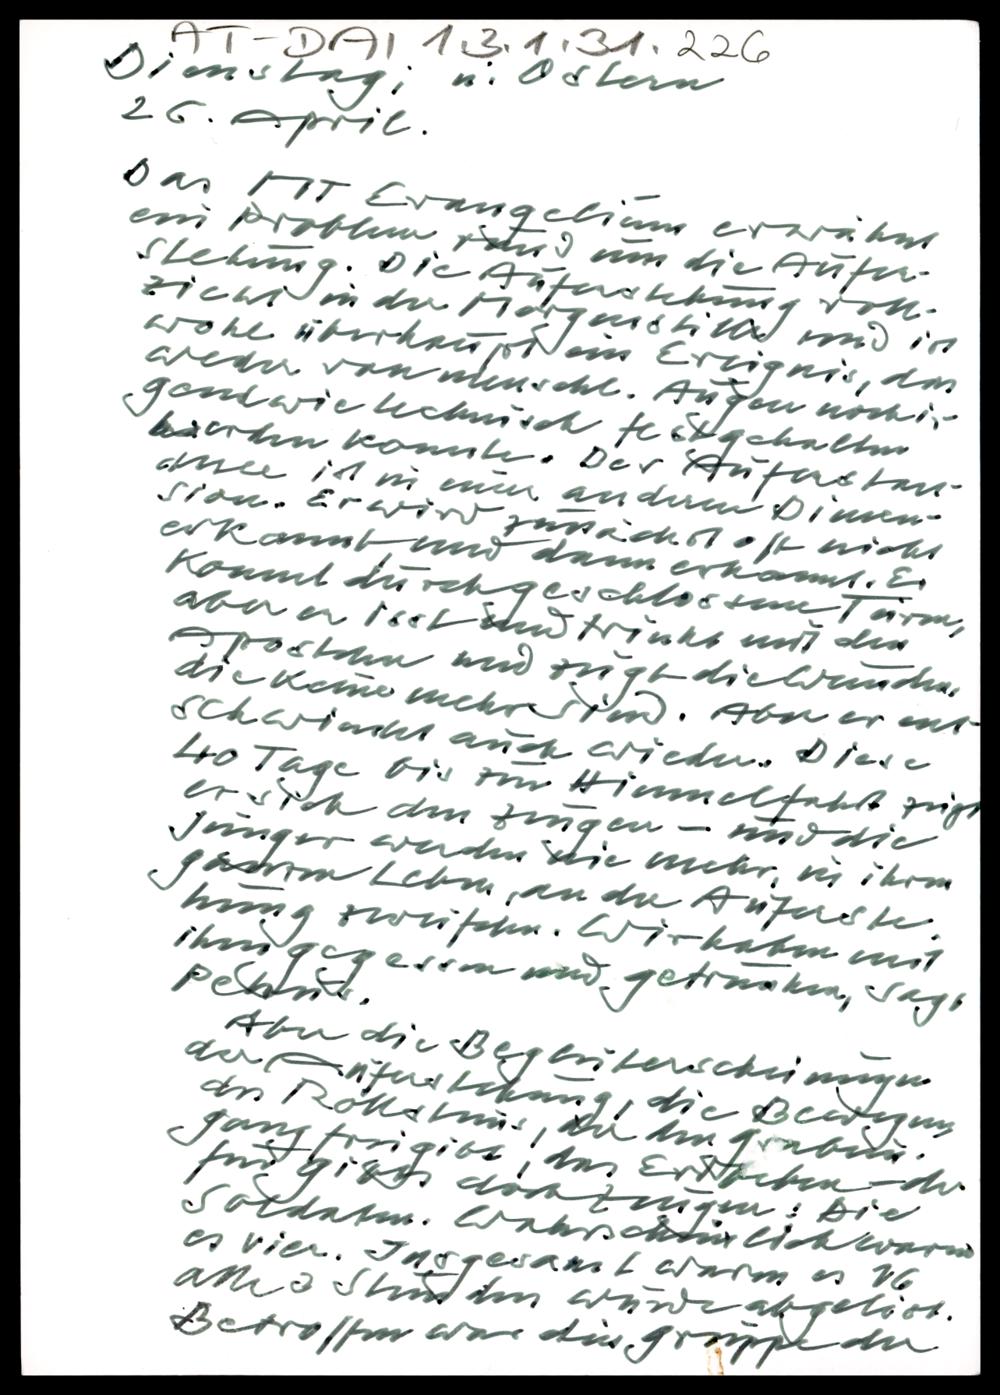 AT-DAI 1.3.1.31.226
Dienstag, n. Ostern
26. April.
Das MT Evangelium erwähnt
ein Problem rund um die Aufer-
stehung. Die Auferstehung voll-
zieht in der Morgenstille und ist
wohl überhaupt ein Ereignis, das
weder von menschl. Augen noch ir-
gendwie technisch festgehalten
werden konnte. Der Auferstan-
dene ist in einer anderen Dimen-
sion. Er wird zunächst oft nicht
erkannt, und dann erkannt. Er
kommt durch geschlossene Türen,
aber er isst und trinkt mit den
Aposteln und zeigt die Wunden,
die keine mehr sind. Aber er ent-
schwindet auch wieder. Diese
40 Tage bis zur Himmelfahrt zeigt
er sich den Zeugen - und die
Jünger werden nie mehr, in ihrem
ganzen Leben, an der Auferste-
hung zweifeln. Wir haben mit
ihm gegessen und getrunken, sagt
Petrus.
Aber die Begleiterscheinungen
der Auferstehung, die Bewegung
des Rollsteins, der den Grabein-
gang freigibt, das Erdbeben - da-
für gibt's doch Zeugen: Die
Soldaten. Wahrscheinlich waren
es vier. Insgesamt waren es 16
alle 3 Stunden wurde abgelöst.
Betroffen war die Gruppe der